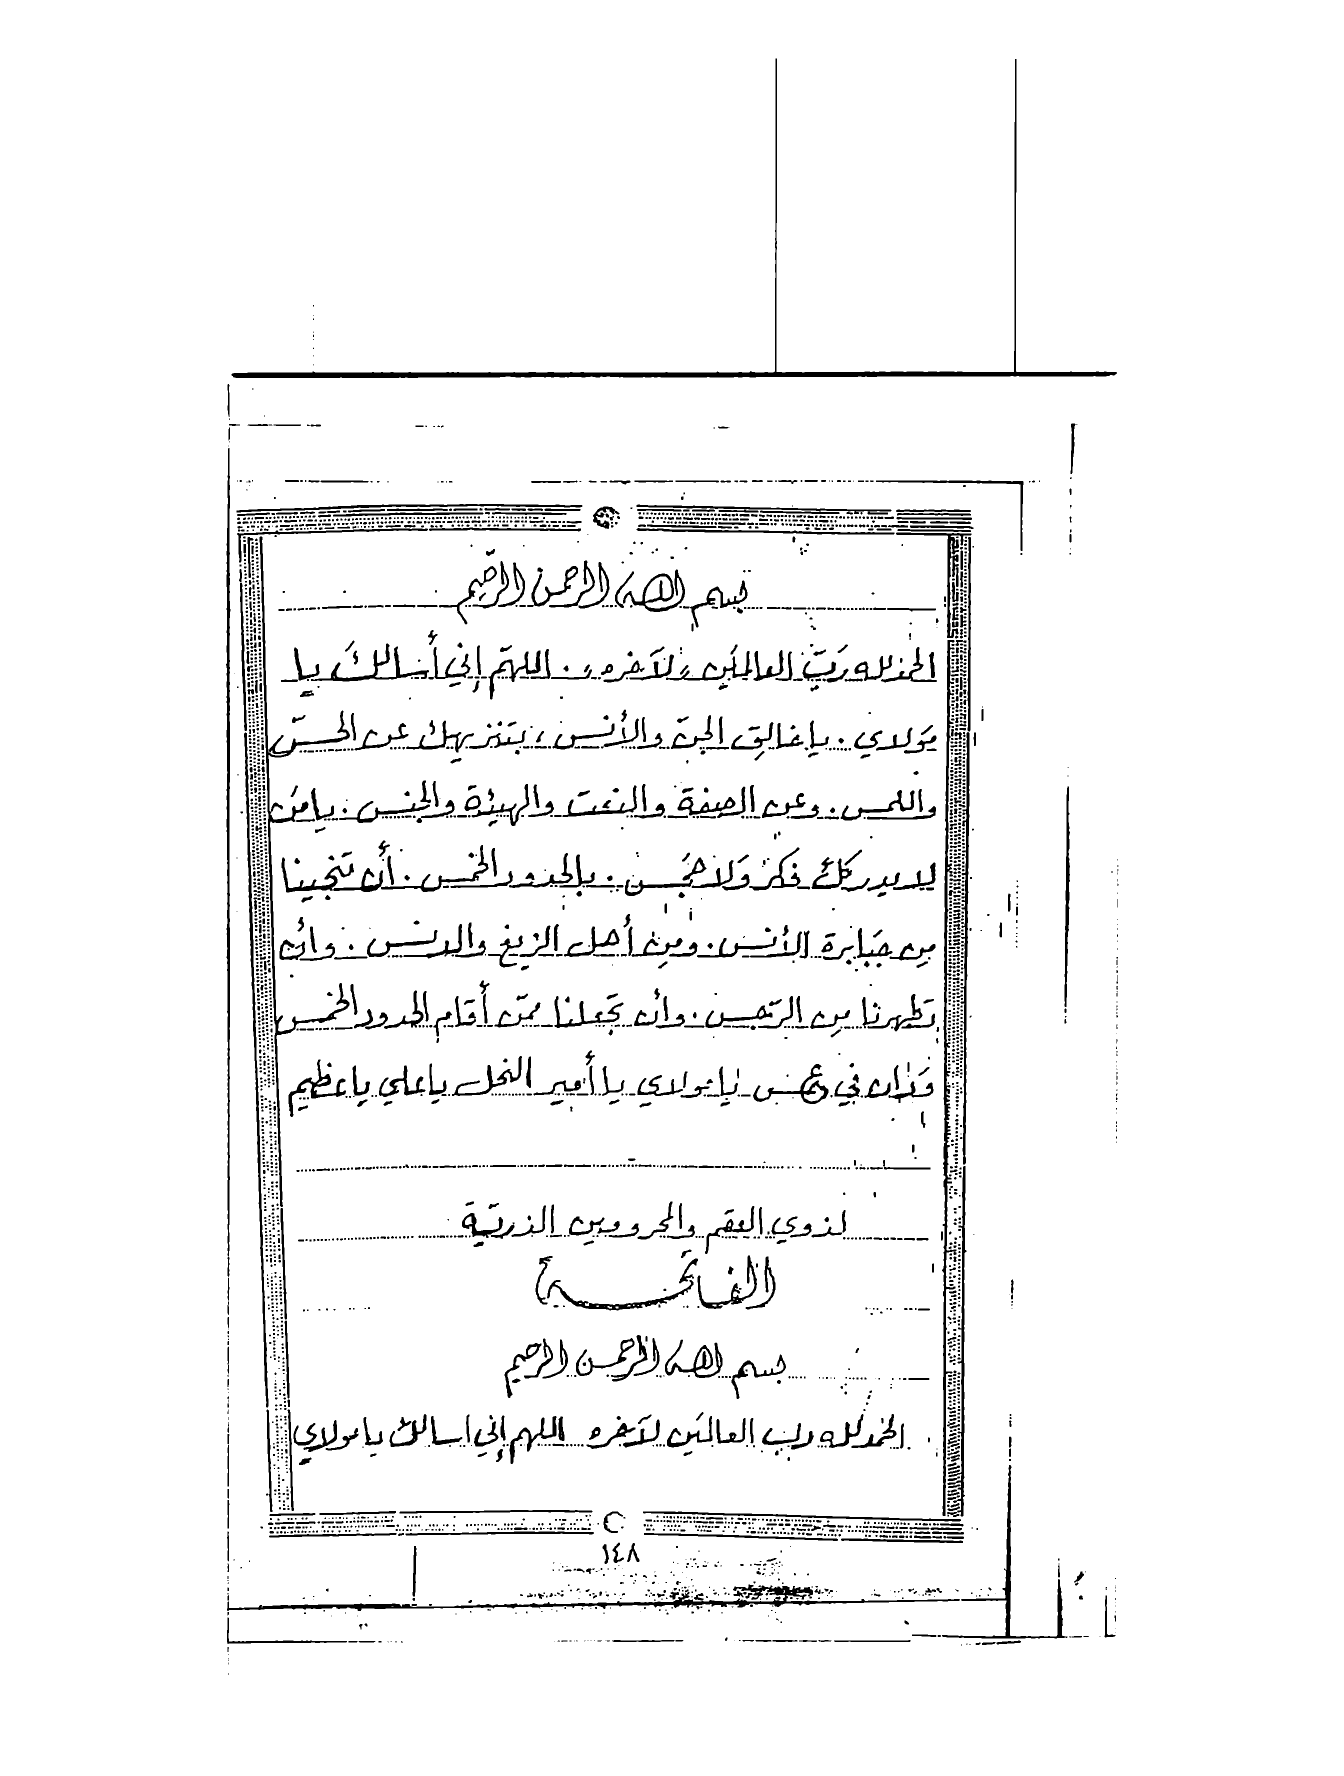 بسم الله الرحمن الرحيم
الحمد لله رَبّ العالمَين «لآخره» . اللهمّ إني أسالكَ يا
مَولاي . يا خالِق الجنّ والأنس ، بتنزيهك عن الحسّ
واللمس . وعن الصفة والنعت والهيئة والجنس . يا مَن
لا يدركك فكرٌ وَلا حَجس . بالحدود الخمس . أن تنجينا
مِن جَبابرة الأنس . ومِن أهل الزيغ والدنس . وان
تطهرنا مِن الرّجس . وان تجعلنا ممّن أقام الحدود الخمس
يا مولاي يا أمير النحل يا علي يا عظيم
لذوي العقم والمحرومين الذريّة
الفاتحة
بسم الله الرحمن الرحيم
الحمد لله رب العالمَين لآخره اللهم إني اسالك يا مولاي
١٤٨